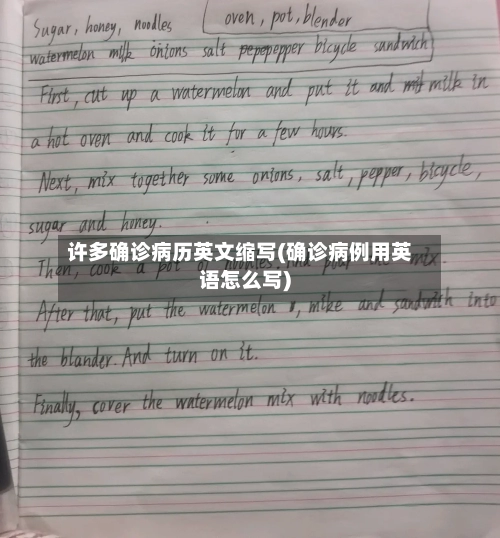 Sugar, honey, noodles oven, pot, blender
watermelon milk onions salt pepepepper bicycle sandwich
First, cut up a watermelon and put it and milk in
a hot oven and cook it for a few hours.
Next, mix together some onions, salt, pepper, bicycle,
sugar and honey.
许多确诊病历英文缩写(确诊病例用英
语怎么写)
Then, cook a pot of noodles. And pour into mix.
After that, put the watermelon, mike and sandwich into
the blander. And turn on it.
Finally, cover the watermelon mix with noodles.